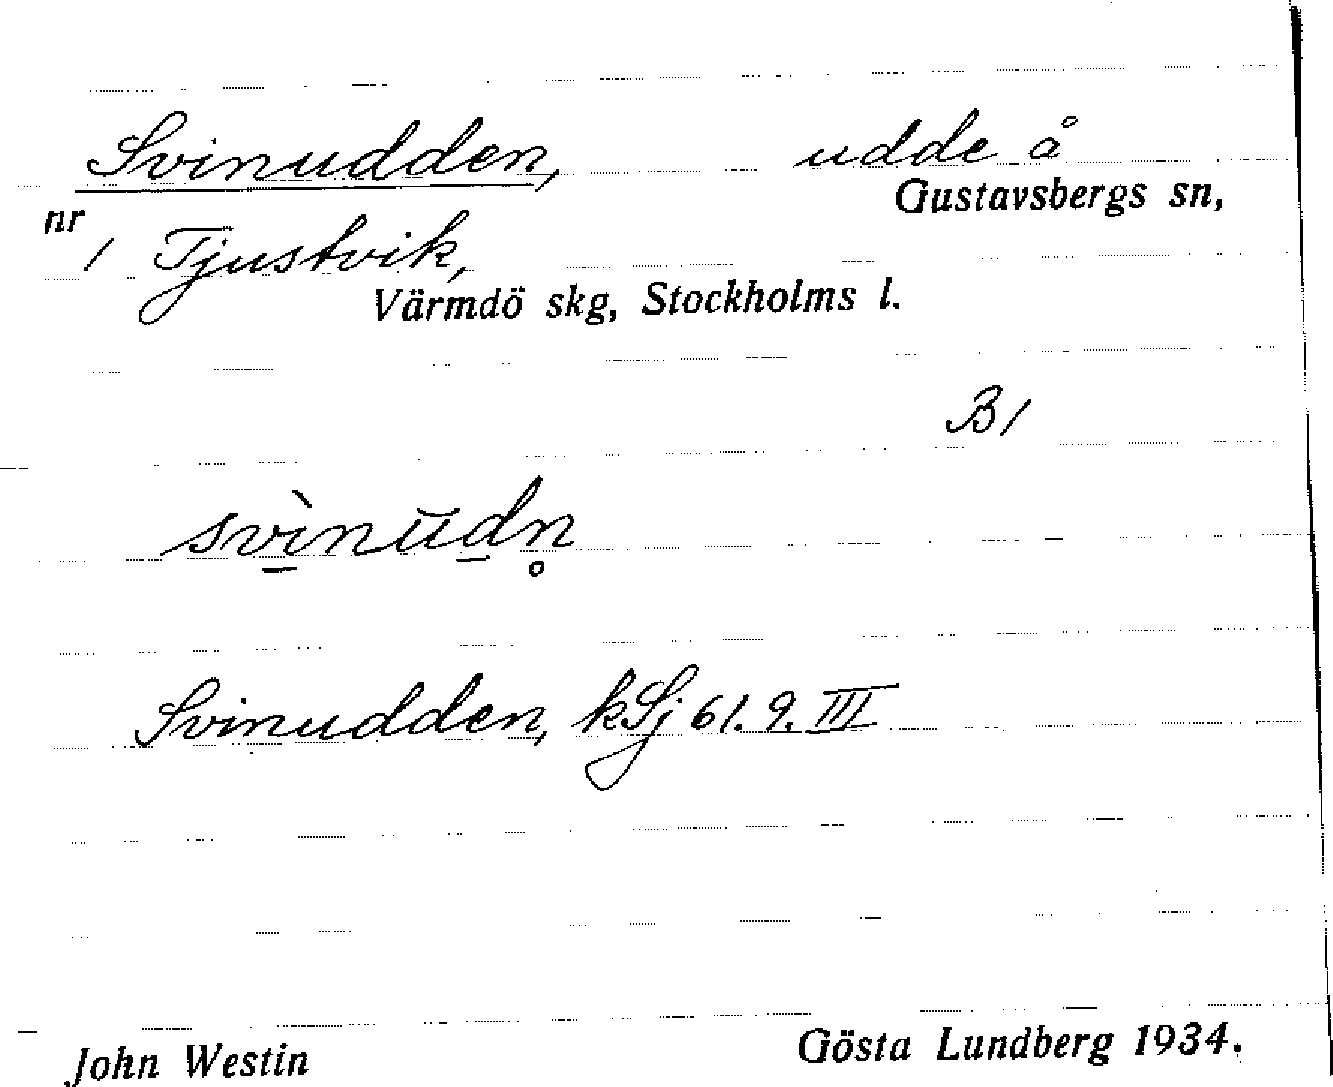 Svinudden, udde å
Gustavsbergs sn,
nr 1 Tjustvik,
Värmdö skg, Stockholms l.
B1
svı̱̀nŭḏn̥
Svinudden, kSj 61.9.III
John Westin Gösta Lundberg 1934.